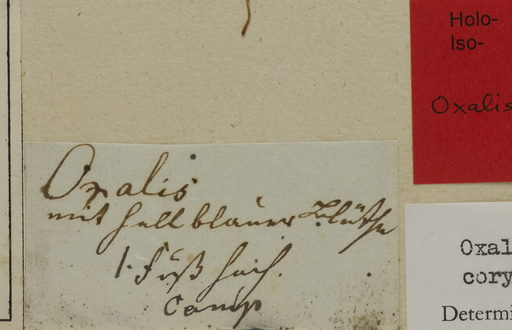 Oxalis
mit hellblauer Blüthe
1. Fuß hoch.
Camp
Holo-
Iso-
Oxalis
Oxal
cory
Determi